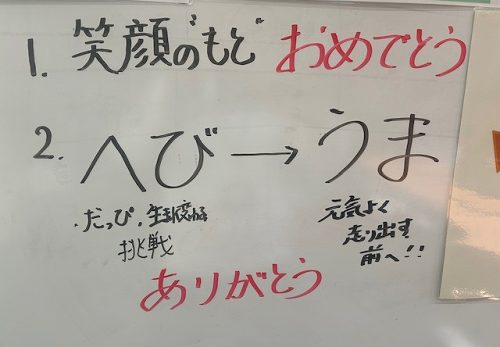 1. 笑顔の"もと" おめでとう
2. へび → うま
・だっぴ、生まれ変わる
挑戦
元気よく
走り出す
前へ!!
ありがとう